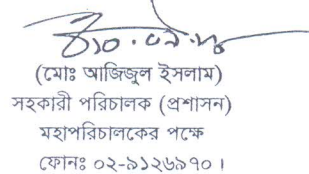 (মোঃ আজিজুল ইসলাম)
সহকারী পরিচালক (প্রশাসন)
মহাপরিচালকের পক্ষে
ফোনঃ ০২-৯১২৬৯৭০।